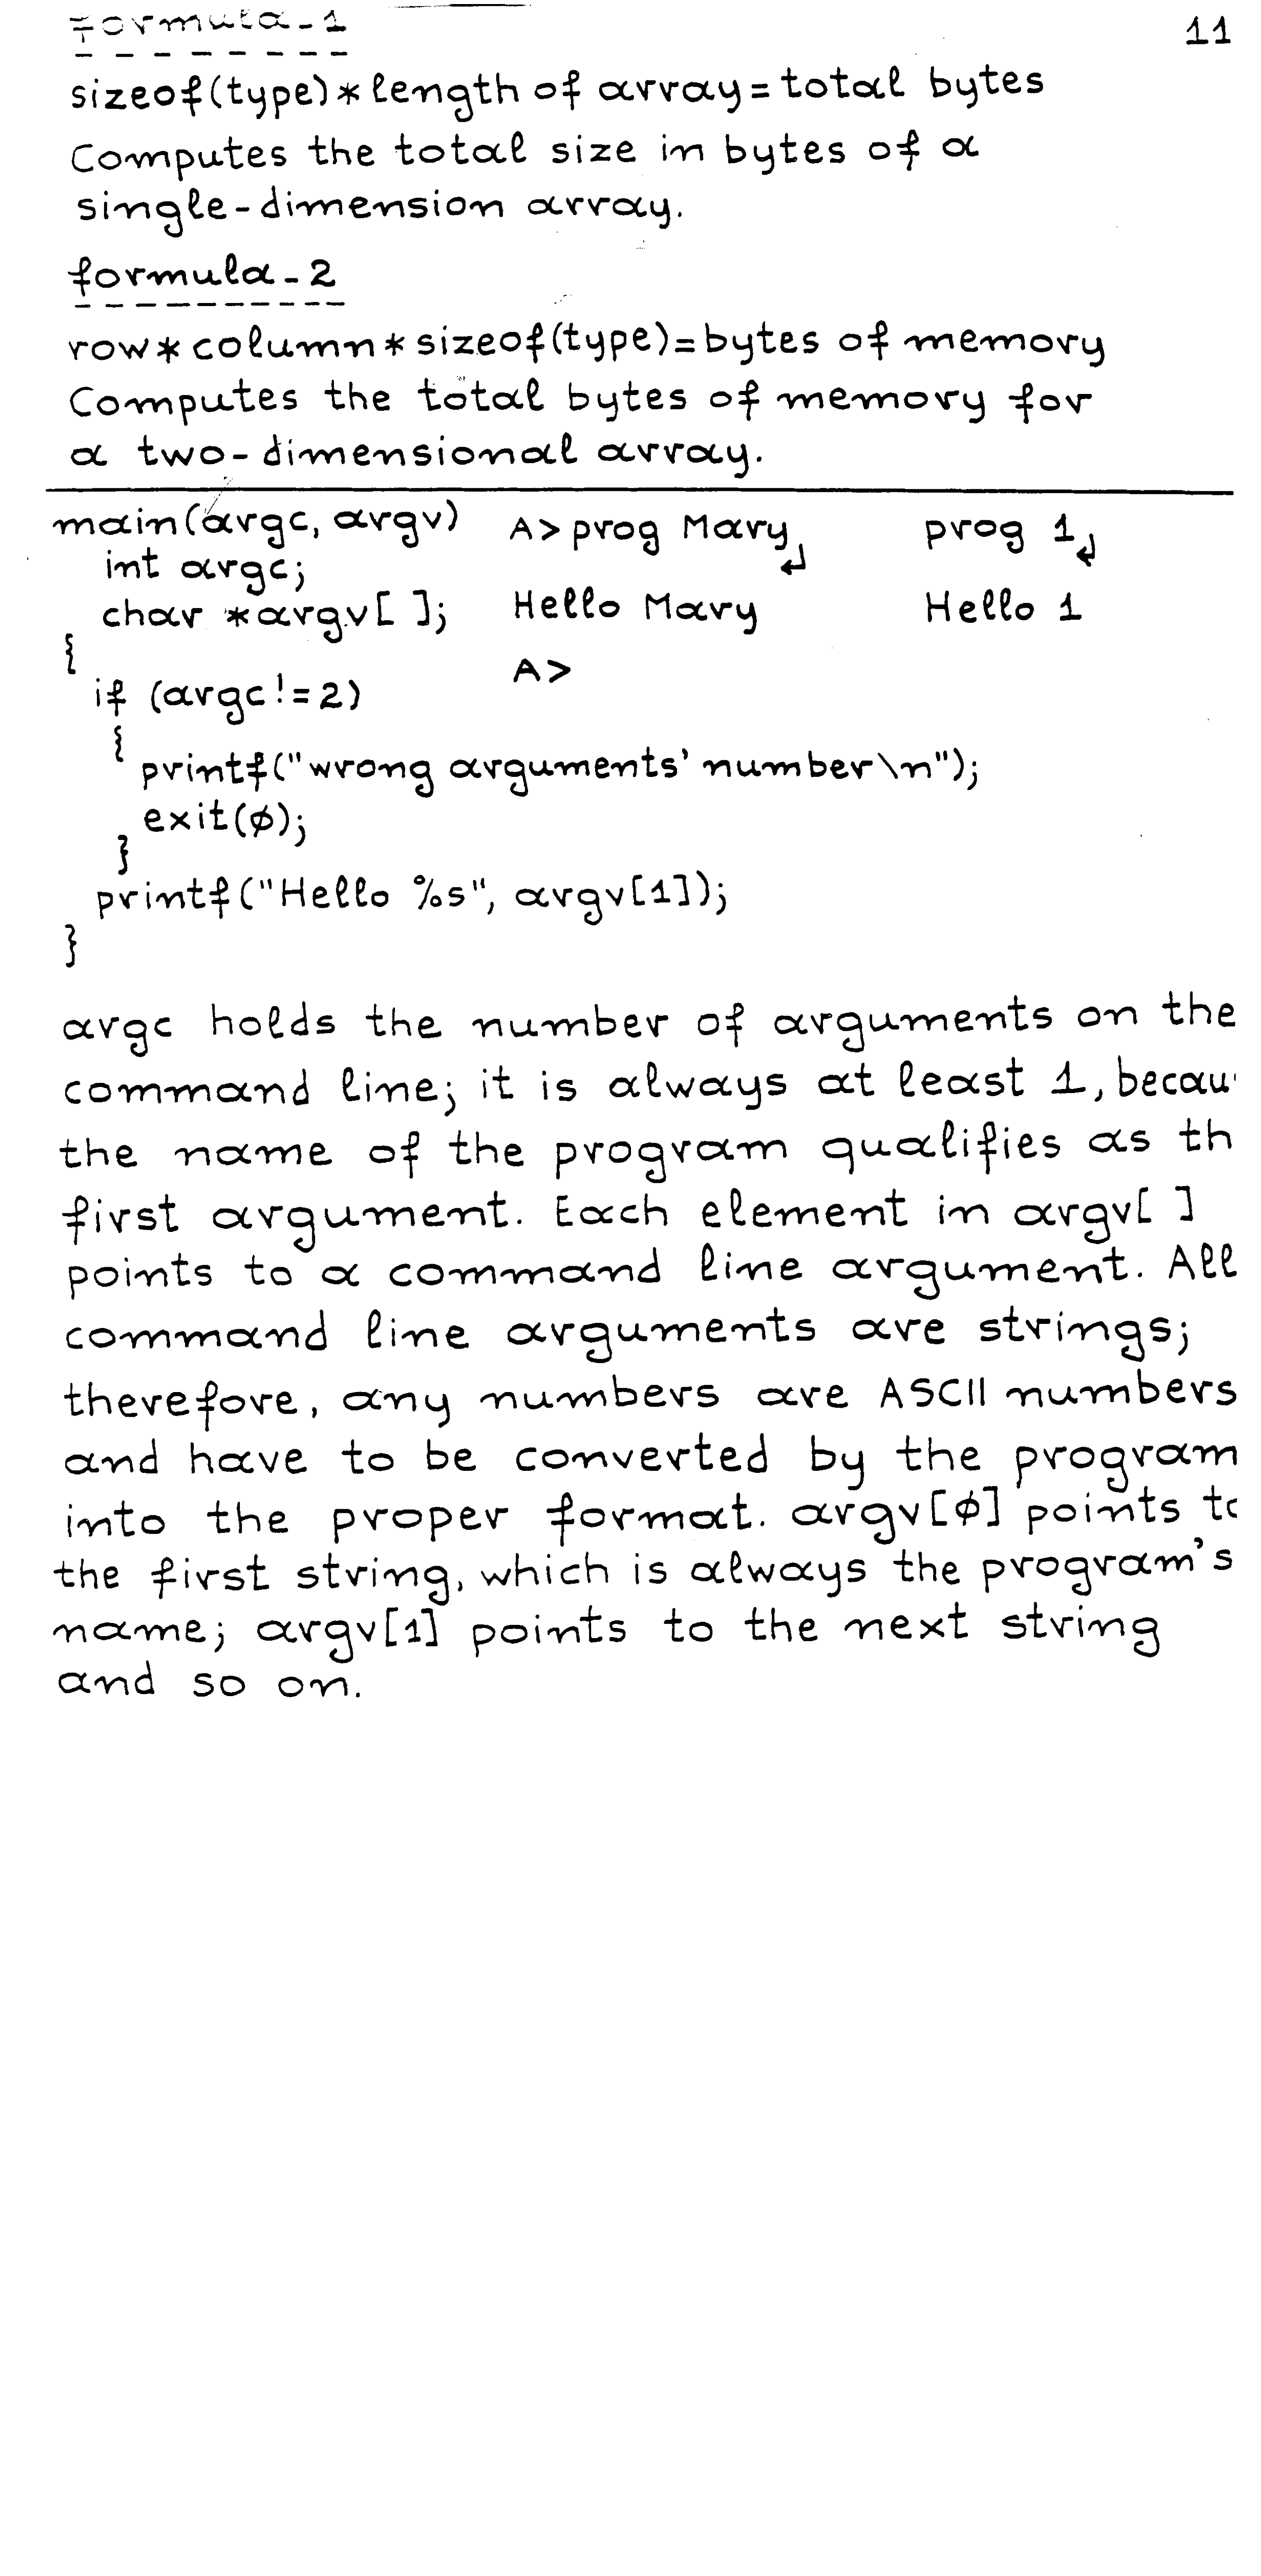 formula-1
11
sizeof(type)*length of array=total bytes
Computes the total size in bytes of a
single-dimension array.
formula-2
row*column*sizeof(type)=bytes of memory
Computes the total bytes of memory for
a two-dimensional array.
main(argc, argv)
int argc;
char *argv[ ];
{
if (argc!=2)
{
printf("wrong arguments' number\n");
exit(ø);
}
printf("Hello %s", argv[1]);
}
A>prog Mary↵
Hello Mary
A>
prog 1↵
Hello 1
argc holds the number of arguments on the
command line; it is always at least 1, becau
the name of the program qualifies as th
first argument. Each element in argv[ ]
points to a command line argument. All
command line arguments are strings;
therefore, any numbers are ASCII numbers
and have to be converted by the program
into the proper format. argv[ø] points to
the first string, which is always the program's
name; argv[1] points to the next string
and so on.